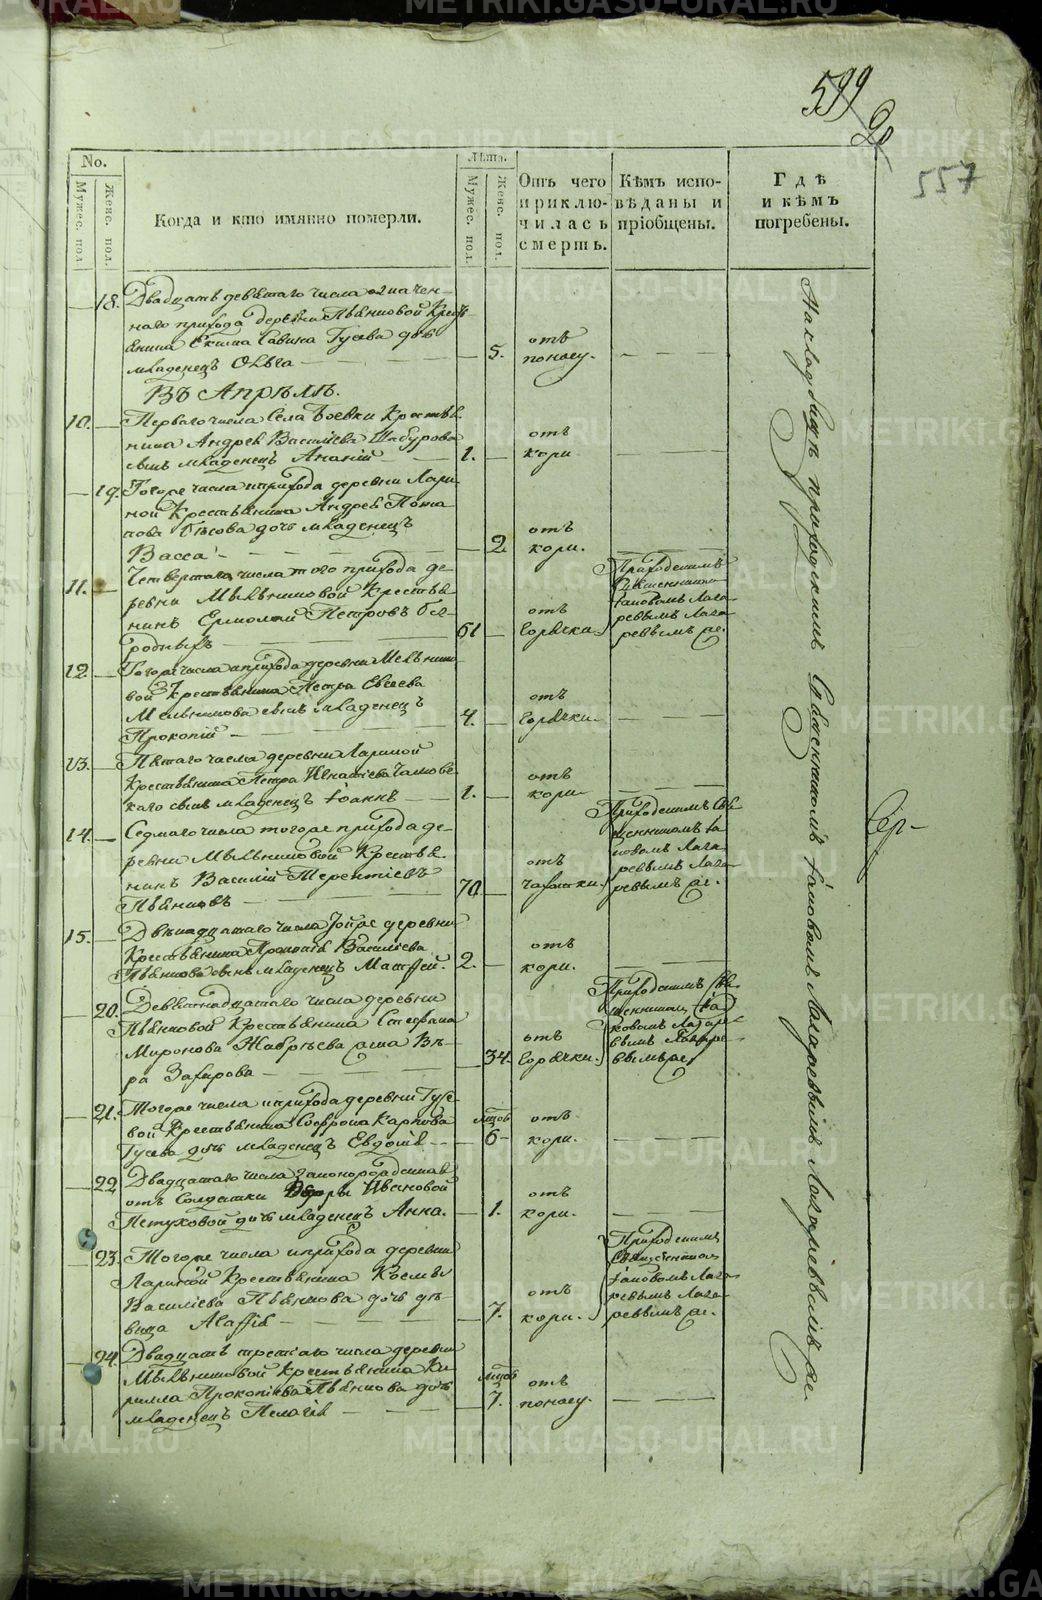 599
90
557
No.
Мужес. пол.
Женс. пол.
Когда и кто имянно померли.
Лѣта.
Мужес. пол.
Женс. пол.
Отъ чего
приклю-
чилась
смерть.
Кѣмъ испо-
вѣданы и
пріобщены.
Гдѣ
и кѣмъ
погребены.
18. Двадцать девятаго числа означен-
наго прихода деревни Пьянковой Кресть
янина Екима Савина Гусева дочь
младенецъ Ольга
5.
отъ
поносу.
Въ Апрѣлѣ.
10. Перваго числа Села Боевки Крестья
нина Андрея Василіева Шабурова
сынъ младенецъ Ананій
1.
отъ
кори
19. Тогоже числа и прихода деревни Лари
ной Крестьянина Андрея Пота
пова Бѣсова дочь младенецъ
Васса
2
отъ
кори.
11. Четвертаго числа того прихода де
ревни Мѣльниковой Крестья
нинъ Ермолай Петровъ Без
родныхъ
61
отъ
Горячки.
Приходскимъ
Священникомъ
Іаковомъ Лаза
ревымъ Лаза
ревымъ же.
12. Тогоже числа и прихода деревни Мѣльнико
вой Крестьянина Петра Евсеева
Мельникова сынъ младенецъ
Прокопій
4.
отъ
Горячки.
13. Пятаго числа деревни Лариной
Крестьянина Петра Игнатіева
сынъ младенецъ Іоаннъ
1.
отъ
кори
14. Седмаго числа тогоже прихода де
ревни Мѣльниковой Крестья
нинъ Василій Терентіевъ
Пьянковъ
70
отъ
чахотки.
Приходскимъ Свя
щенникомъ Іа
ковомъ Лаза
ревымъ Лаза
ревымъ же.
15. Двѣнадцатаго числа тойже деревни
Крестьянина Прокопія Василіева
Пьянкова сынъ младенецъ Матфей.
2.
отъ
кори.
20. Девятнадцатаго числа деревни
Пьянковой Крестьянина Стефана
Миронова жена Вѣ
ра Захарова
34.
отъ
Горячки.
Приходскимъ Свя
щенникомъ Іа
ковомъ Лазаре
вымъ Лазаре
вымъ же.
21. Тогоже числа и прихода деревни Гусе
вой Крестьянина Софрона Карпова
Гусева дочь младенецъ Евдокія
6
отъ
кори.
22 Двадцатаго числа
отъ Солдатки Ивановой
Петуховой дочь младенецъ Анна.
1.
отъ
кори.
23. Тогоже числа и прихода деревни
Лариной Крестьянина Козмы
Василіева Пьянкова дочь дѣ
вица Агафія
7.
отъ
кори.
Приходскимъ
Священникомъ
Іаковомъ Лаза
ревымъ Лаза
ревымъ же.
24. Двадцать третіяго числа деревни
Мѣльниковой Крестьянина Ки
рилла Прокопіева Пьянкова дочь
младенецъ Пелагія
7.
отъ
поносу.
На кладбищѣ приходскимъ Священникомъ Іаковомъ Лазаревымъ Лазаревымъ же.
METRIKI.GASO-URAL.RU